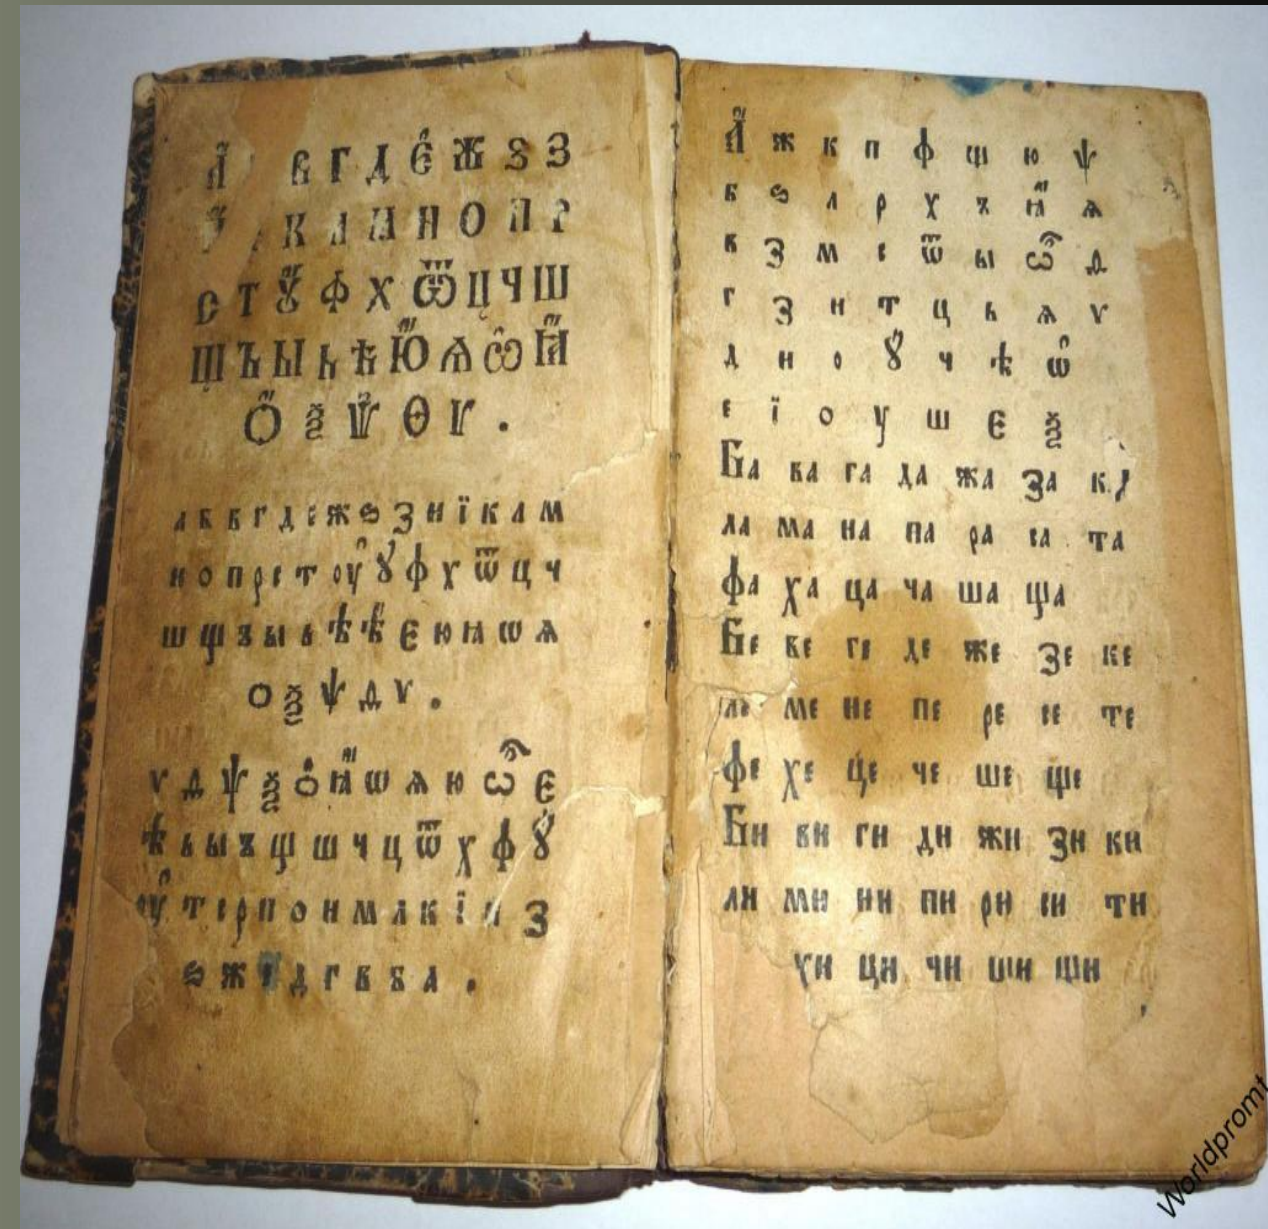 А҆ В Г Д Є҆ Ж Ѕ З
К Л М Н О П Р
С Т Ꙋ҆ Ф Х Ѿ Ц Ч Ш
Щ Ъ Ы Ь Ѣ Ю҆ Ѧ Ѡ҆ Ꙗ҆
О҆ Ѯ Ѱ Ѳ Ѵ .
а б в г д е ж ѕ з и ї к л м
н о п р с т оу҆ ꙋ ф х ѿ ц ч
ш щ ъ ы ь ѣ ѣ҆ є ю ꙗ ѡ ѧ
о ѯ ѱ д ѵ .
ѵ д ѱ ѯ о҆ ꙗ҆ ѡ ѧ ю ѡ҆ є
ѣ ь ы ъ щ ш ч ц ѿ х ф ꙋ҆
оу҆ т с р п о н м л к ї и з
ѕ ж е д г в б а .
А҆ ж к п ф щ ю ѱ
б ѕ л р х ъ ꙗ҆ ѧ
в з м с ѿ ы ѡ҆ д
г з н т ц ь ѧ ѵ
д и о ꙋ҆ ч ѣ ѡ҆
е ї о у ш є ѯ
Ба ва га да жа за
ла ма на па ра са та
фа ха ца ча ша ща
Бе ве ге де же зе ке
ле ме не пе ре се те
фе хе це че ше ще
Би ви ги ди жи зи ки
ли ми ни пи ри си ти
хи ци чи ши щи
Worldpromt